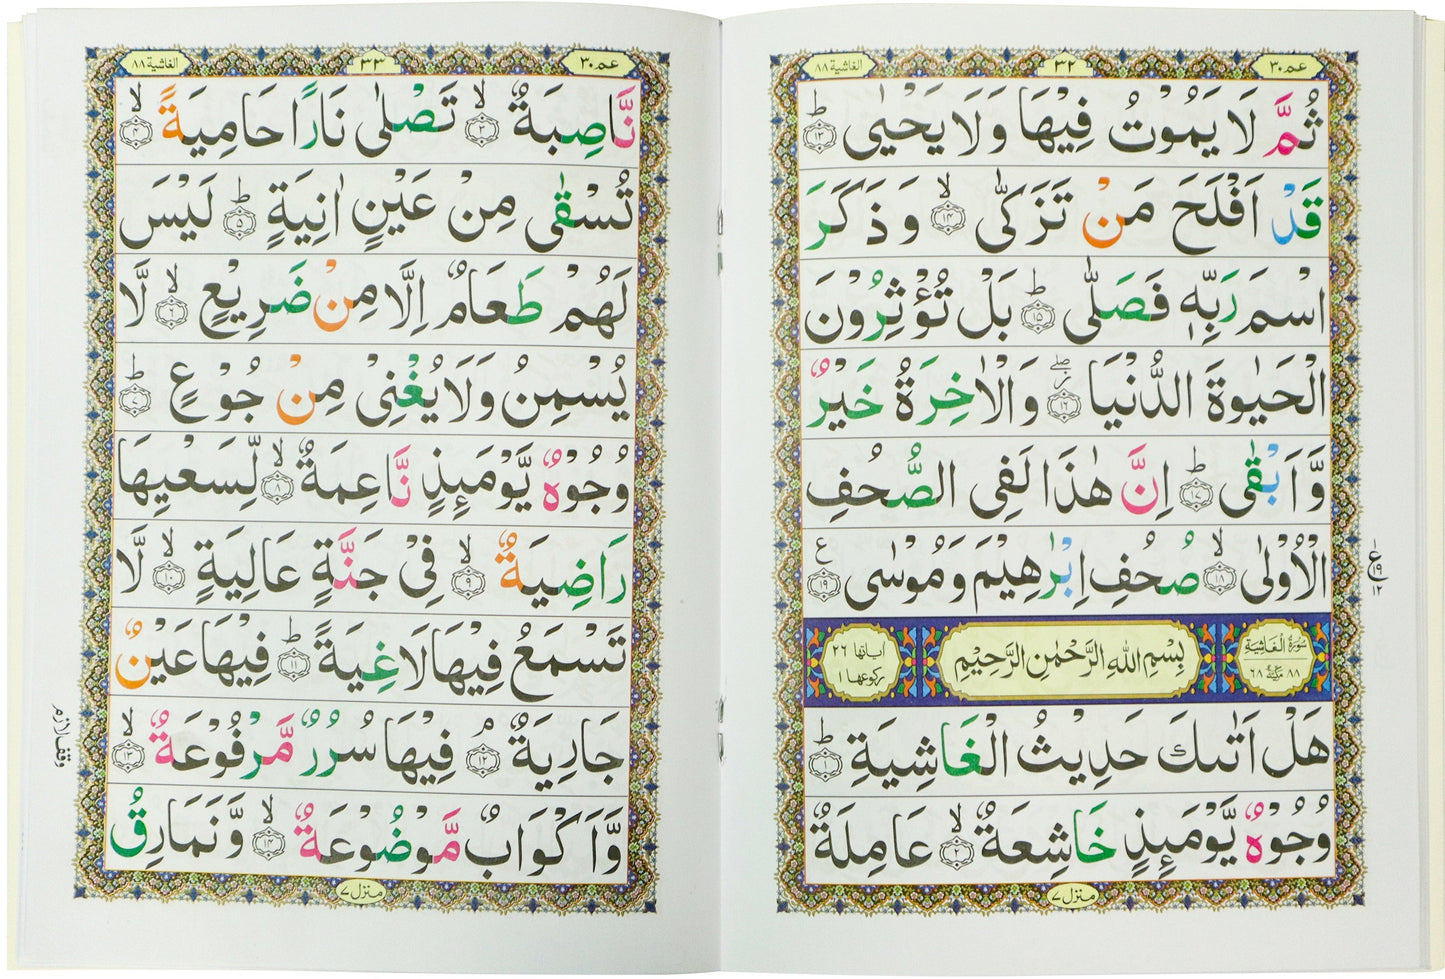 عم ٣٠
٣٢
الغاشية ٨٨
ثُمَّ لَا يَمُوْتُ فِيْهَا وَلَا يَحْيٰى ؕ ﴿١٣﴾
قَدْ اَفْلَحَ مَنْ تَزَكّٰى ۙ ﴿١٤﴾ وَ ذَكَرَ
اسْمَ رَبِّهٖ فَصَلّٰى ؕ ﴿١٥﴾ بَلْ تُؤْثِرُوْنَ
الْحَيٰوةَ الدُّنْيَا ﴿١٦﴾ وَالْاٰخِرَةُ خَيْرٌ
وَّاَبْقٰى ؕ ﴿١٧﴾ اِنَّ هٰذَا لَفِى الصُّحُفِ
الْاُوْلٰى ۙ ﴿١٨﴾ صُحُفِ اِبْرٰهِيْمَ وَمُوْسٰى ﴿١٩﴾ ع
ع ١٩ ١٢
سُوْرَةُ الْغَاشِيَةِ
٨٨ مكية ٦٨
بِسْمِ اللهِ الرَّحْمٰنِ الرَّحِيْمِ
اٰياتها ٢٦
ركوعها ١
هَلْ اَتٰىكَ حَدِيْثُ الْغَاشِيَةِ ؕ ﴿١﴾
وُجُوْهٌ يَّوْمَئِذٍ خَاشِعَةٌ ۙ ﴿٢﴾ عَامِلَةٌ
منزل ٧
عم ٣٠
٣٣
الغاشية ٨٨
نَّاصِبَةٌ ۙ ﴿٣﴾ تَصْلٰى نَارًا حَامِيَةً ۙ ﴿٤﴾
تُسْقٰى مِنْ عَيْنٍ اٰنِيَةٍ ؕ ﴿٥﴾ لَيْسَ
لَهُمْ طَعَامٌ اِلَّا مِنْ ضَرِيْعٍ ۙ ﴿٦﴾ لَّا
يُسْمِنُ وَلَا يُغْنِىْ مِنْ جُوْعٍ ؕ ﴿٧﴾
وُجُوْهٌ يَّوْمَئِذٍ نَّاعِمَةٌ ۙ ﴿٨﴾ لِّسَعْيِهَا
رَاضِيَةٌ ۙ ﴿٩﴾ فِىْ جَنَّةٍ عَالِيَةٍ ۙ ﴿١٠﴾ لَّا
تَسْمَعُ فِيْهَا لَاغِيَةً ؕ ﴿١١﴾ فِيْهَا عَيْنٌ
جَارِيَةٌ ۘ ﴿١٢﴾ فِيْهَا سُرُرٌ مَّرْفُوْعَةٌ ۙ ﴿١٣﴾
وقف لازم
وَّاَكْوَابٌ مَّوْضُوْعَةٌ ۙ ﴿١٤﴾ وَّنَمَارِقُ
منزل ٧